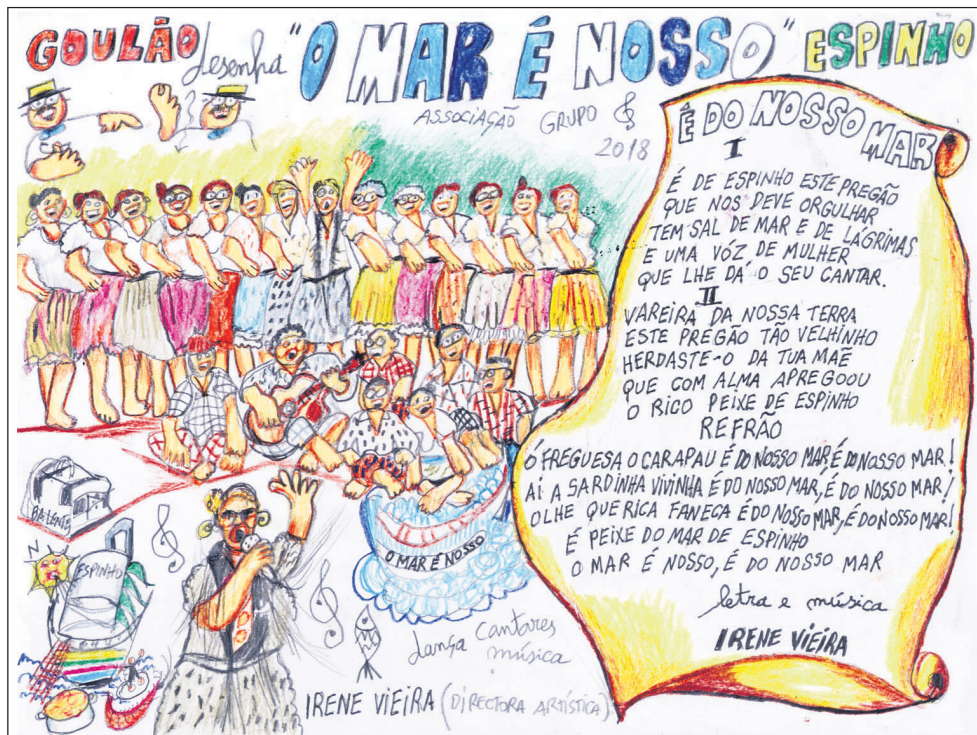 GOULÃO desenha "O MAR É NOSSO" ESPINHO
ASSOCIAÇÃO GRUPO
2018
É DO NOSSO MAR
I
É DE ESPINHO ESTE PREGÃO
QUE NOS DEVE ORGULHAR
TEM SAL DE MAR E DE LÁGRIMAS
E UMA VÓZ DE MULHER
QUE LHE DÁ O SEU CANTAR.
II
VAREIRA DA NOSSA TERRA
ESTE PREGÃO TÃO VELHINHO
HERDASTE-O DA TUA MAÊ
QUE COM ALMA APREGOOU
O RICO PEIXE DE ESPINHO
REFRÃO
Ó FREGUESA O CARAPAU É DO NOSSO MAR, É DO NOSSO MAR!
AI A SARDINHA VIVINHA É DO NOSSO MAR, É DO NOSSO MAR!
OLHE QUE RICA FANECA É DO NOSSO MAR, É DO NOSSO MAR!
É PEIXE DO MAR DE ESPINHO
O MAR É NOSSO, É DO NOSSO MAR
letra e música
IRENE VIEIRA
O MAR É NOSSO
ESPINHO
dança cantares
música
IRENE VIEIRA (DIRECTORA ARTÍSTICA)